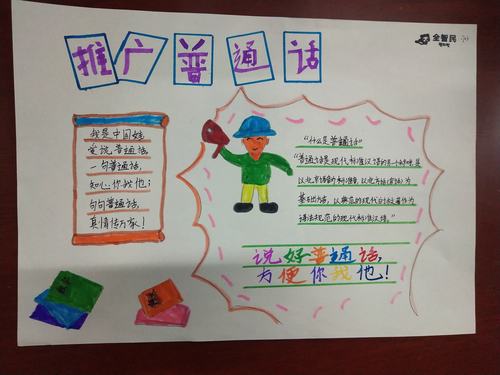 推广普通话
全智民
我是中国娃
爱说普通话
一句普通话,
知心..你我他;
句句普通话,
真情传万家!
“什么是普通话”
“普通话是现代标准汉语的另一个称呼,是
以北京语音为标准音,以北方话(官话)为
基础方言,以典范的现代白话文著作为
语法规范的现代标准汉语。”
说好普通话,
方便你我他!